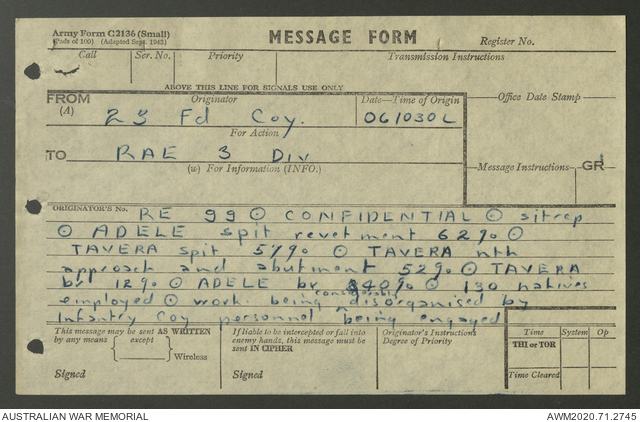 Army Form C2136 (Small)
(Pads of 100) (Adapted Sept. 1943)
MESSAGE FORM
Register No.
Call
Ser. No.
Priority
Transmission Instructions
ABOVE THIS LINE FOR SIGNALS USE ONLY
FROM
(A)
Originator
Date—Time of Origin
Office Date Stamp
23 Fd Coy.
061030L
For Action
TO
RAE 3 Div
(w) For Information (INFO.)
Message Instructions
GR
ORIGINATOR'S No.
RE 99 ⊙ CONFIDENTIAL ⊙ sitrep
⊙ ADELE spit revetment 62% ⊙
TAVERA spit 57% ⊙ TAVERA nth
approach and abutment 52% ⊙ TAVERA
br 12% ⊙ ADELE br 40% ⊙ 130 natives
considerably
employed ⊙ work being disorganised by
Infantry Coy personnel being engaged
This message may be sent AS WRITTEN
by any means
except
Wireless
Signed
If liable to be intercepted or fall into
enemy hands, this message must be
sent IN CIPHER
Signed
Originator's Instructions
Degree of Priority
Time
System
Op
THI or TOR
Time Cleared
AUSTRALIAN WAR MEMORIAL
AWM2020.71.2745